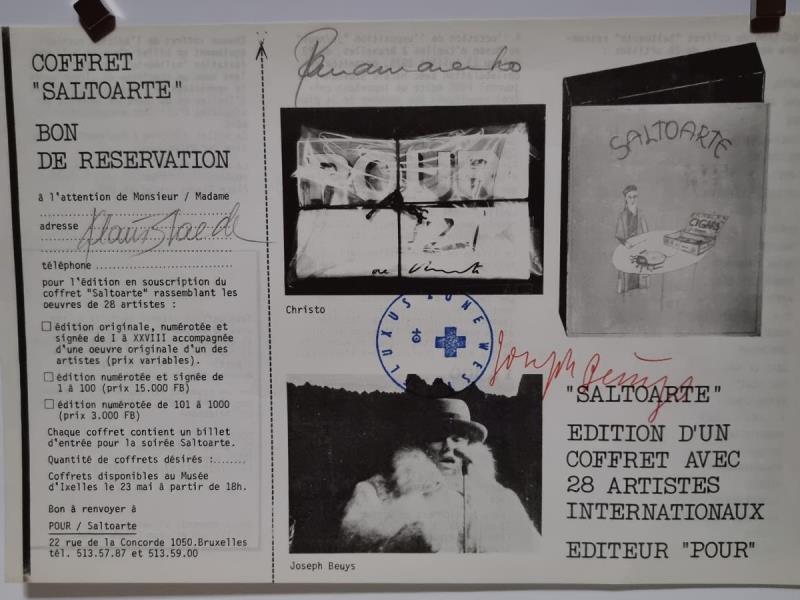 COFFRET
"SALTOARTE"
BON
DE RESERVATION
à l'attention de Monsieur / Madame
adresse
Klaus Staeck
téléphone
pour l'édition en souscription du
coffret "Saltoarte" rassemblant les
oeuvres de 28 artistes :
édition originale, numérotée et
signée de I à XXVIII accompagnée
d'une oeuvre originale d'un des
artistes (prix variables).
édition numérotée et signée de
1 à 100 (prix 15.000 FB)
édition numérotée de 101 à 1000
(prix 3.000 FB)
Chaque coffret contient un billet
d'entrée pour la soirée Saltoarte.
Quantité de coffrets désirés :.......
Coffrets disponibles au Musée
d'Ixelles le 23 mai à partir de 18h.
Bon à renvoyer à
POUR / Saltoarte
22 rue de la Concorde 1050.Bruxelles
tél. 513.57.87 et 513.59.00
Panamarenko
POUR
Christo
LUXUS ZONE WEST
Joseph Beuys
SALTOARTE
CIGARS
Joseph Beuys
"SALTOARTE"
EDITION D'UN
COFFRET AVEC
28 ARTISTES
INTERNATIONAUX
EDITEUR "POUR"